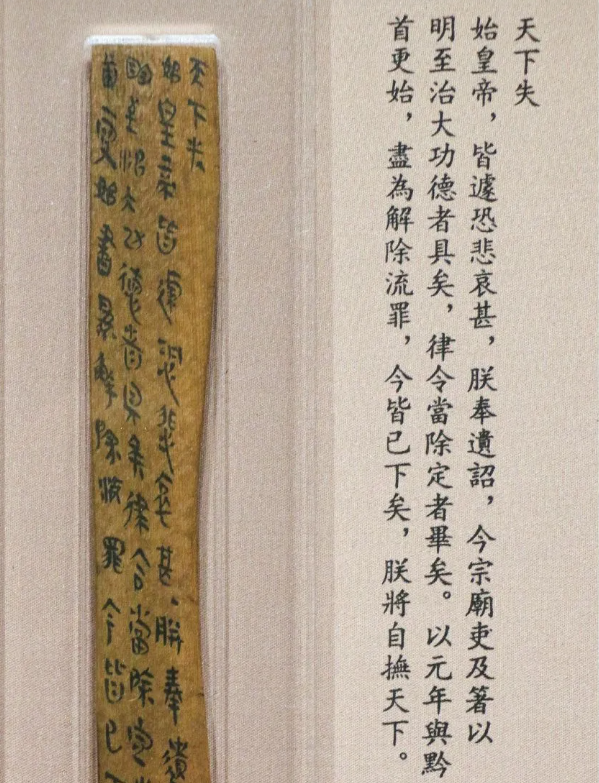 天下失
始皇帝，皆遽恐悲哀甚，朕奉遺詔，今宗廟吏及箸以
明至治大功德者具矣，律令當除定者畢矣。以元年與黔
首更始，盡為解除流罪，今皆已下矣，朕將自撫天下。
天下失
始皇帝皆遽恐悲哀甚朕奉遺
明至治大功德者具矣律令當除定者
首更始盡為解除故罪令皆已下